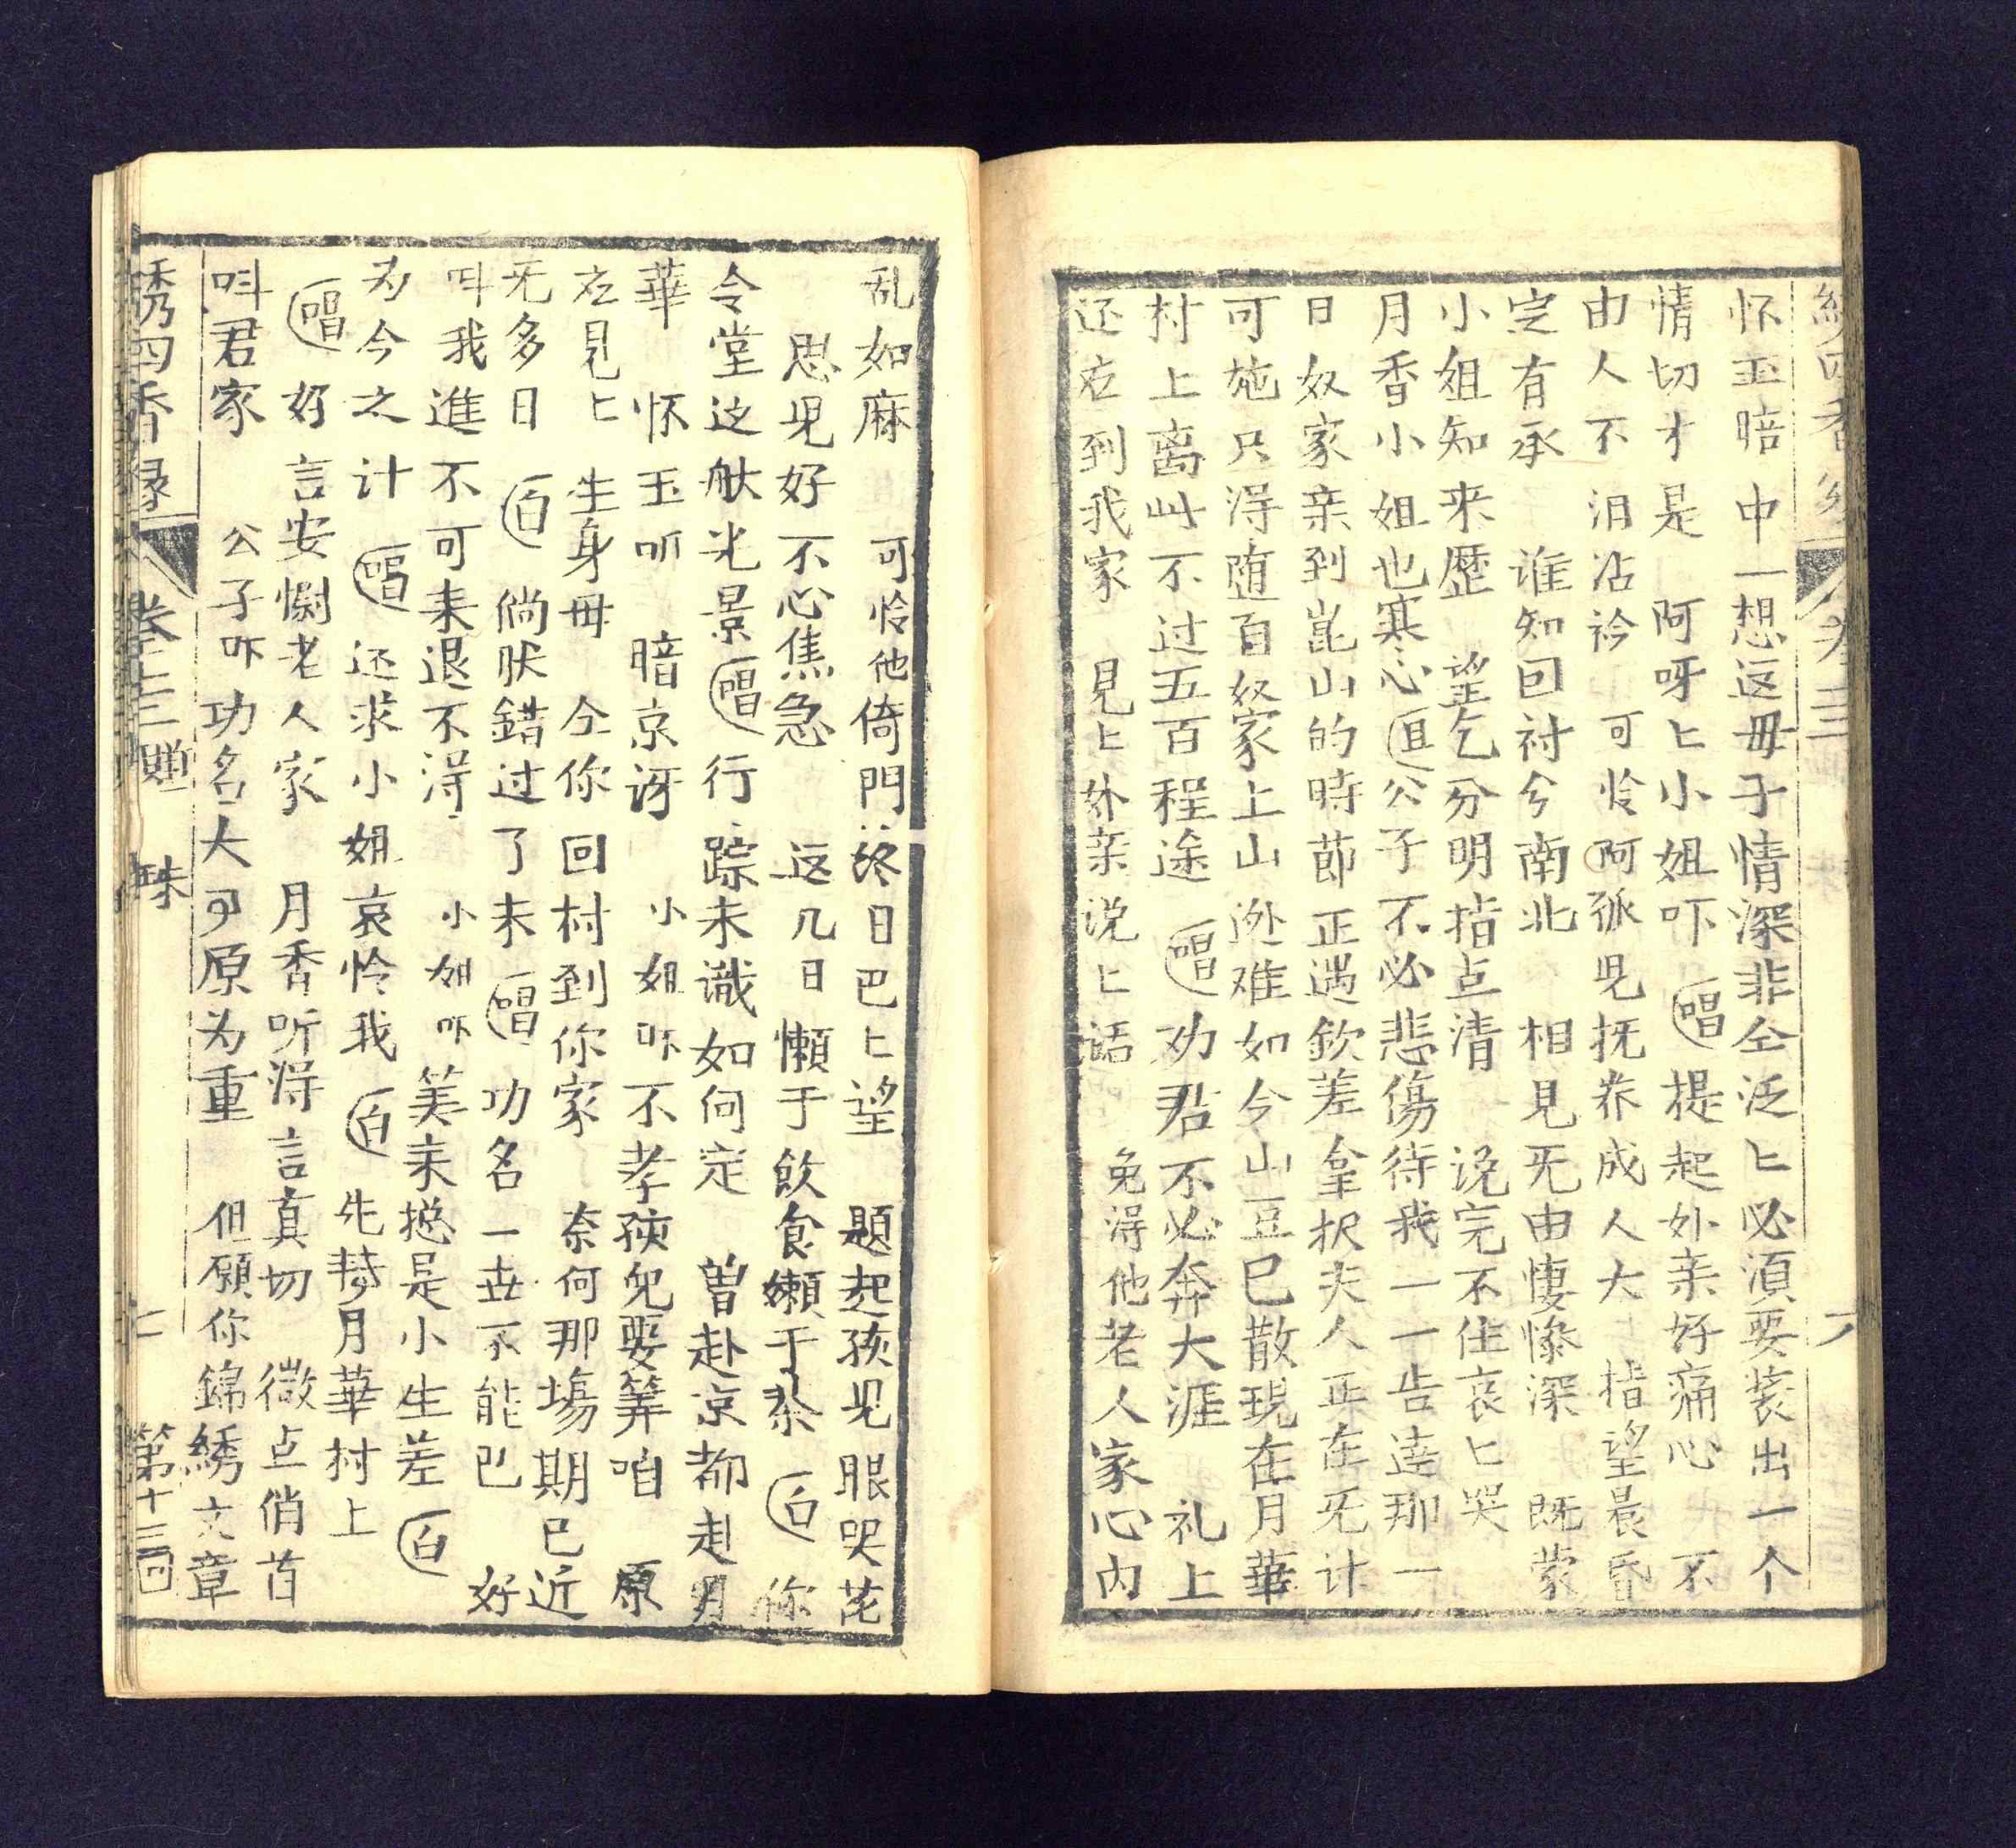 怀玉暗中一想这母子情深非仝泛匕必須要裝出一个
情切才是　阿呀匕小姐吓　唱　提起外亲好痛心　不
由人不泪沾衿　可怜阿孤児抚养成人大　指望晨昏
定有承　谁知回衬兮南北　相見旡由悽惨深　既蒙
小姐知来歷　望乞分明指点清　说完不住哀匕哭
月香小姐也寒心　旦　公子不必悲傷待我一一告逹那一
日奴家亲到崑山的時節正遇欽差拿択夫人正在旡计
可施只淂随百奴家上山迯难如今山豆已散現在月華
村上离此不过五百程途　唱　劝君不必奔大涯　礼上
还应到我家　見匕外亲说匕话　免淂他老人家心内
乱如麻　可怜他倚門终日巴匕望　題起孩児眼哭花
思児好不心焦急　这几日懶于飲食嬾于茶　白　你
令堂这般光景　唱　行踪未识如何定　曽赴京都赴月
華　怀玉听　暗京讶　小姐吓不孝孩児要筭咱　原
应見匕生身母　仝你回村到你家　奈何那塲期已近
旡多日　白　倘肰錯过了未　唱　功名一世不能巴　好
呌我進不可耒退不淂　小姐吓　筭耒捴是小生差　白
为今之计　唱　还求小姐哀怜我　白　先替月華村上
唱　好言安慰老人家　月香听淂言真切　微点俏首
呌君家　公子吓　功名大事原为重　但願你錦綉文章
綉四香缘　卷三　七　第十三回